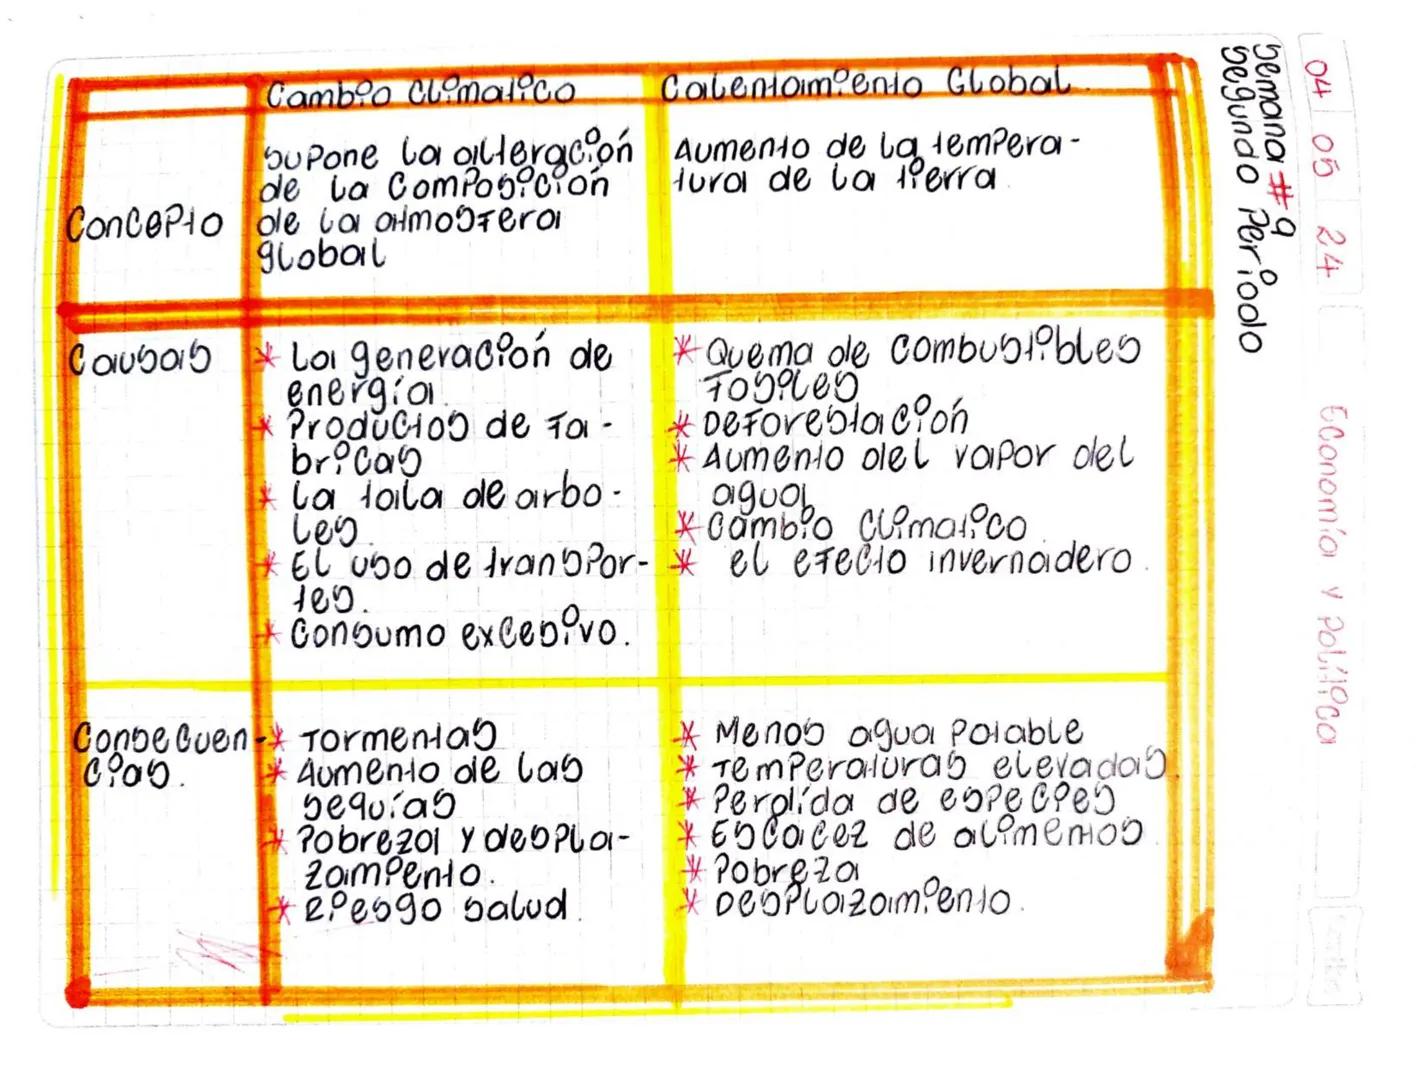 04 05 24
Economía y política
Semana #9
Segundo Periodo
Cambio Climatico
Calentamiento Global.
Concepto
Supone la alteración
de la Composición
de la atmosfera
global
Aumento de la tempera-
tura de la tierra.
Causas
* La generación de
energía.
* Productos de fa-
bricas
* La tala de arbo-
les.
* El uso de transpor-
tes.
* Consumo excesivo.
* Quema de combustibles
fosiles
* Deforestación
* Aumento del vapor del
agua
* Cambio Climatico.
* el efecto invernadero.
Consecuen-
cias.
* Tormentas
* Aumento de las
sequías
* Pobreza y despla-
zamiento.
* Riesgo salud.
* Menos agua potable
* Temperaturas elevadas
* Perdída de especies
* Escacez de alimentos
* Pobreza
* Desplazamiento.